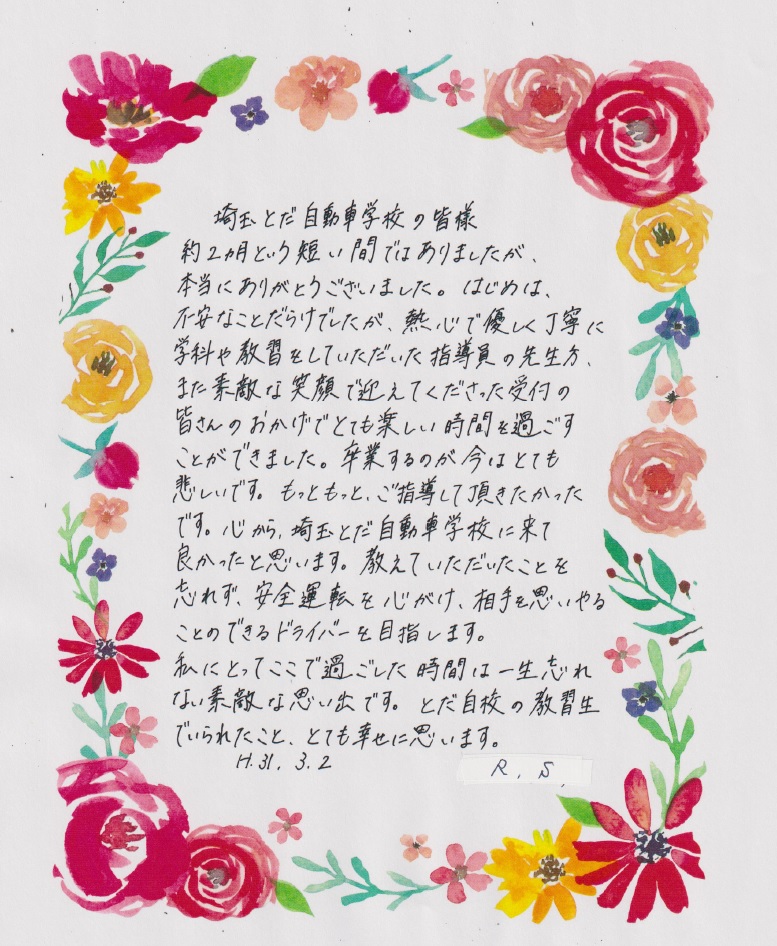 埼玉とだ自動車学校の皆様
約2ヵ月という短い間ではありましたが、
本当にありがとうございました。はじめは、
不安なことだらけでしたが、熱心で優しく丁寧に
学科や教習をしていただいた指導員の先生方、
また素敵な笑顔で迎えてくださった受付の
皆さんのおかげでとても楽しい時間を過ごす
ことができました。卒業するのが今はとても
悲しいです。もっともっと、ご指導して頂きたかった
です。心から、埼玉とだ自動車学校に来て
良かったと思います。教えていただいたことを
忘れず、安全運転を心がけ、相手を思いやる
ことのできるドライバーを目指します。
私にとってここで過ごした時間は一生忘れ
ない素敵な思い出です。とだ自校の教習生
でいられたこと、とても幸せに思います。
H.31.3.2 R.S.